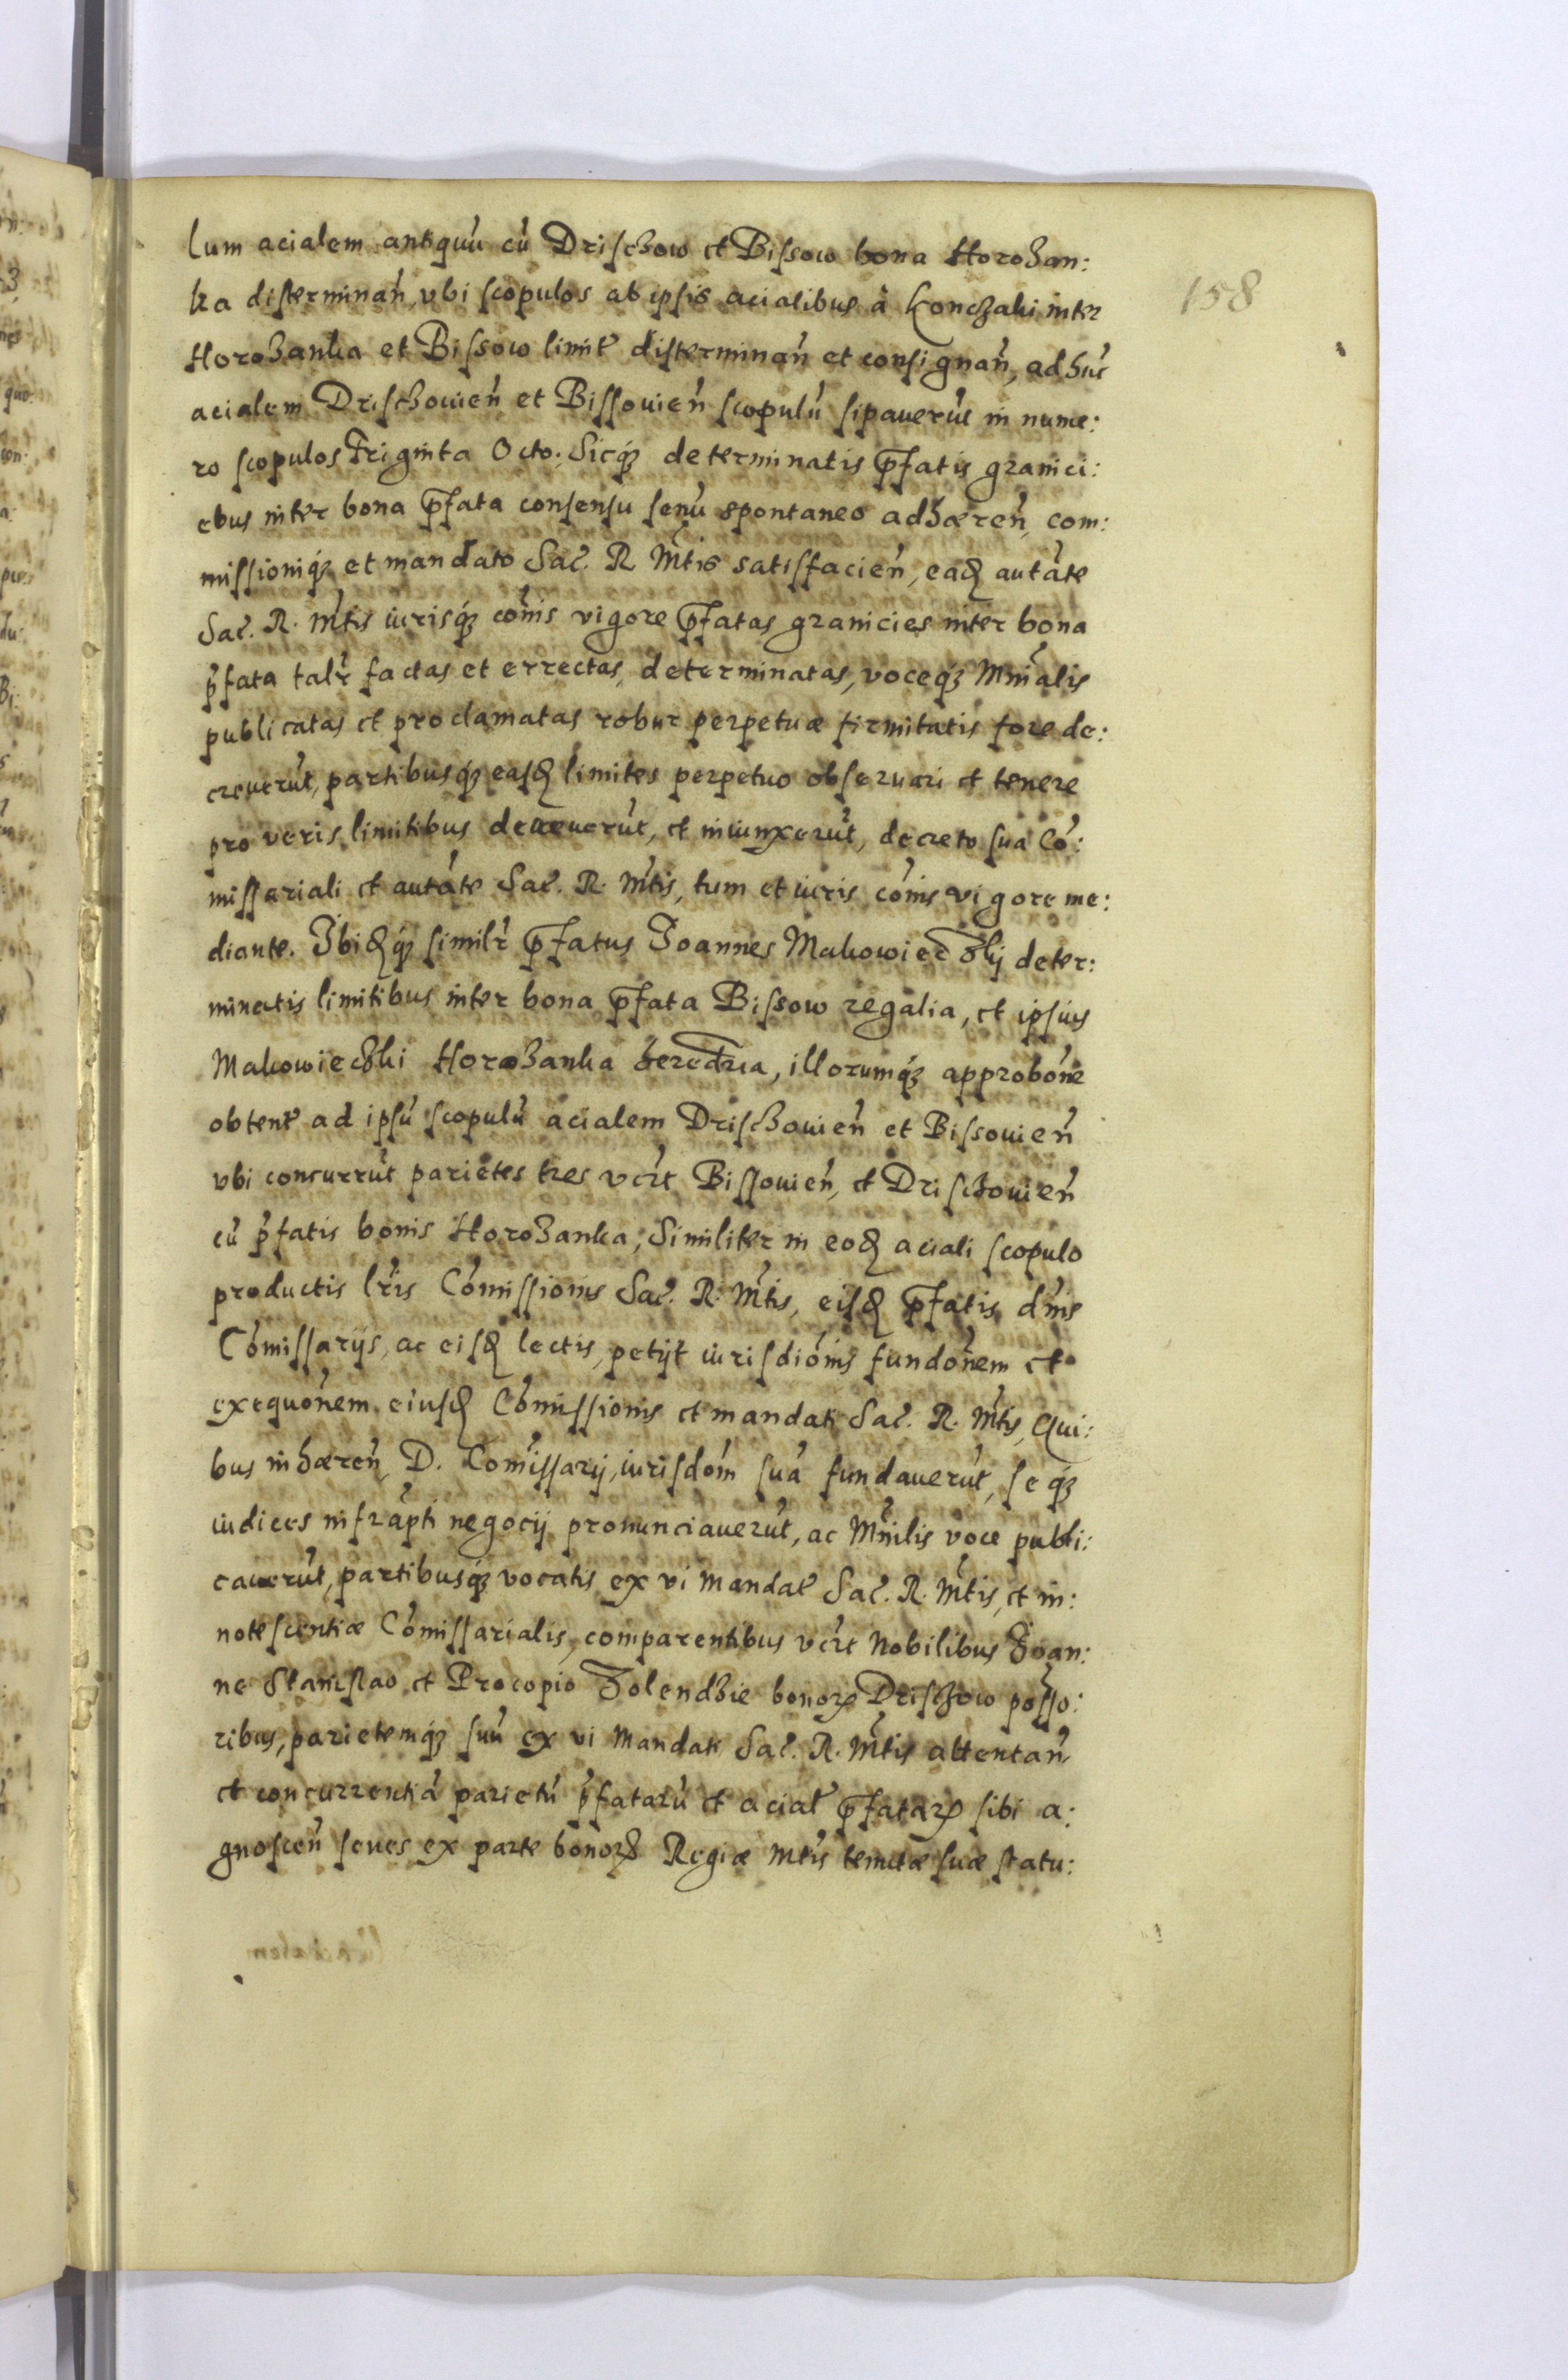 158
lum acialem antiquū cū Drischow et Bissow bona Horozan:
ka disterminan̄, vbi scopulos ab ipsis acialibus à Konczaki inter
Horozanka et Bissow limit̄ disterminan̄ et consignan̄, ad hūc
acialem Drischouien̄ et Bissouien̄ scopulū sipauerūt in nume:
ro scopulos Triginta Octo. Sicq́ꝫ determinatis p̄fatis granici:
ebus inter bona p̄fata consensu senū spontaneo adhæren̄, com:
missioniq́ꝫ et mandato Sac̄. R. Mt̄is satisfacien̄, eaꝗ autāte
Sac̄. R. Mt̄is iurisq́ꝫ cōnis vigore p̄fatas granicies inter bona
p̄fata talr̄ factas et errectas, determinatas, voceq́ꝫ Mnīalis
publicatas et proclamatas robur perpetuæ firmitatis fore de:
creuerūt, partibusq́ꝫ easꝗ limites perpetuo obseruari et tenere
pro veris limitibus decreuerūt, et iniunxerūt, decreto sua Cō:
missariali et autāte Sac̄. R. Mt̄is, tum et iuris cōnis vigore me:
diante. Ibiꝗq́ꝫ similr̄ p̄fatus Joannes Makowieczkij deter:
minatis limitibus inter bona p̄fata Bissow regalia, et ipsius
Makowieczki Horozanka hered̄ria, illorumq́ꝫ approbōne
obtent̄ ad ipsū scopulū acialem Drischouien̄ et Bissouien̄
vbi concurrūt parietes tres vcr̄t Bissouien̄, et Drischouien̄
cū p̄fatis bonis Horozanka; Similiter in eoꝗ aciali scopulo
productis lr̄is Cōmissionis Sac̄. R. Mt̄is, eisꝗ p̄fatis dn̄is
Cōmissarijs, ac eisꝗ lectis, petijt iurisdiōnis fundōnem et
exequōnem eiusꝗ Cōmissionis et mandati Sac̄. R. Mt̄is, Qui:
bus inhæren̄, D. Com̄issarij, iurisdōm suā fundauerūt, seq́ꝫ
iudices infrāpti negocij pronunciauerūt, ac Mn̄ilis voce publi:
cauerūt, partibusq́ꝫ vocatis ex vi mandat̄ Sac̄. R. Mt̄is, et in:
notescentiæ Cōmissarialis, comparentibus vcr̄t Nobilibus Joan:
ne Stanislao et Procopio Zolendzie bonoꝝ Drischow poss̄o:
ribus, parietemq́ꝫ suū ex vi mandati Sac̄. R. Mt̄is attentan̄
et concurrentiā parietū p̄fatarū et acial̄ p̄fataꝝ sibi a:
gnoscen̄ senes ex parte bonoꝝ Regiæ Mt̄is tenutæ suæ statu: